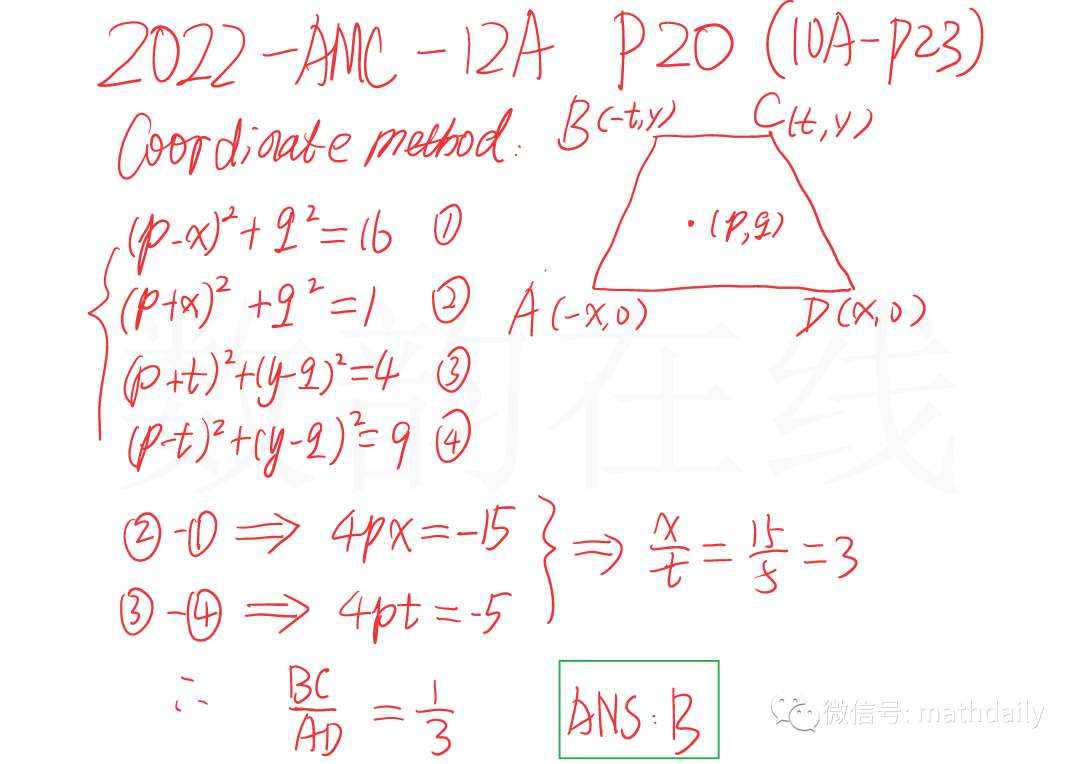 2022-AMC-12A P20 (10A-P23)
Coordinate method:
B(-t,y) C(t,y)
(p-x)²+q²=16 ①
.(p,q)
(p+x)²+q²=1 ②
A(-x,0) D(x,0)
(p+t)²+(y-q)²=4 ③
(p-t)²+(y-q)²=9 ④
数韵在线
②-① ⇒ 4px=-15
③-④ ⇒ 4pt=-5
⇒ x/t = 15/5 = 3
∴ BC/AD = 1/3
ANS: B
微信号: mathdaily